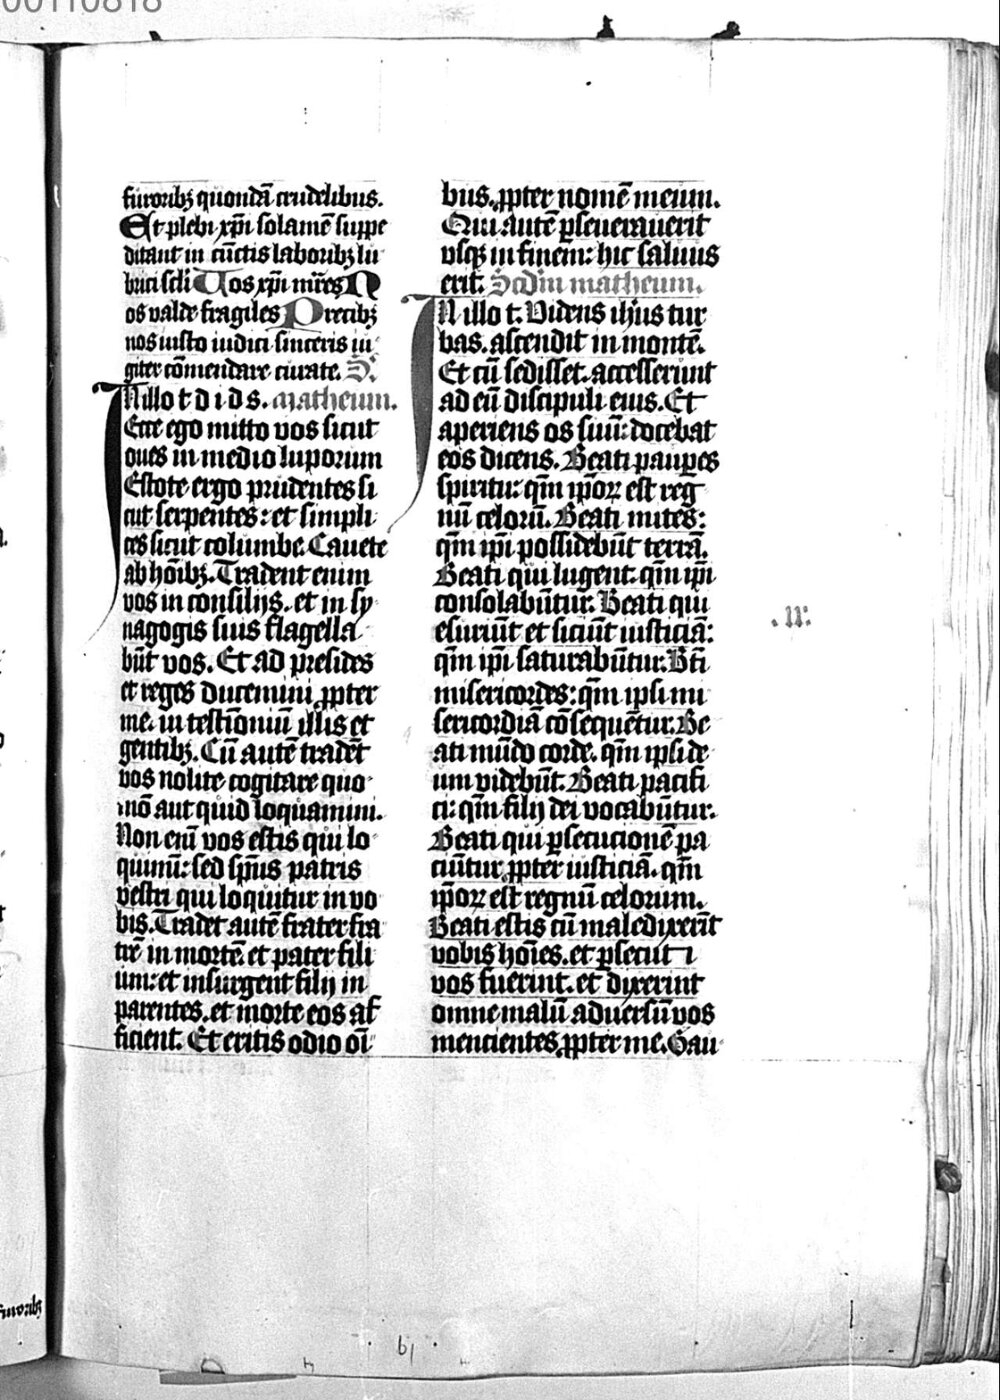 00110818
furoribꝫ quondā crudelibus.
Et plebi xp̄i solamē suppe
ditant in cūctis laboribꝫ lu
brici scl̄i Uos xp̄i mīres N
os valde fragiles Precibꝫ
nos iusto iudici sinceris iu
giter cōmendare curate. S.
In illo t d i d s. matheum.
Ecce ego mitto vos sicut
oues in medio luporum
Estote ergo prudentes si
cut serpentes: et simpli
ces sicut columbe. Cauete
ab hōibꝫ. Tradent enim
vos in consilijs. et in sy
nagogis suis flagella
būt vos. Et ad presides
et reges ducemini ꝓpter
me. in testimoniū illis et
gentibꝫ. Cū autē tradēt
vos nolite cogitare quo
mō aut quid loquamini.
Non em̄ vos estis qui lo
quimī: sed sp̄us patris
vestri qui loquitur in vo
bis. Tradet autē frater fra
trē in mortē. et pater fili
um: et insurgent filij in
parentes. et morte eos af
ficient. Et eritis odio oī
bus. ꝓpter nomē meum.
Qui autē ꝑseuerauerit
vsqꝫ in finem: hic saluus
erit. Scdm̄ matheum.
In illo t. Videns ih̄us tur
bas. ascendit in montē.
Et cū sedisset. accesserunt
ad eū discipuli eius. Et
aperiens os suū: docebat
eos dicens. Beati pauꝑes
spiritu: qm̄ ip̄oꝝ est reg
nū celorū. Beati mites:
qm̄ ip̄i possidebūt terrā.
Beati qui lugent. qm̄ ip̄i
consolabūtur. Beati qui
esuriūt et siciūt iusticiā:
qm̄ ip̄i saturabūtur. Bt̄i
misericordes: qm̄ ipsi mi
sericordiā cōsequētur. Be
ati mūdo corde. qm̄ ipsi de
um videbūt. Beati pacifi
ci: qm̄ filij dei vocabūtur.
Beati qui ꝑsecucionē pa
ciūtur ꝓpter iusticiā. qm̄
ip̄oꝝ est regnū celorum.
Beati estis cū maledixerīt
vobis hoīes. et ꝑsecuti
vos fuerint. et dixerint
omne malū aduersū vos
mencientes ꝓpter me. Gau
.II:
furoribꝫ